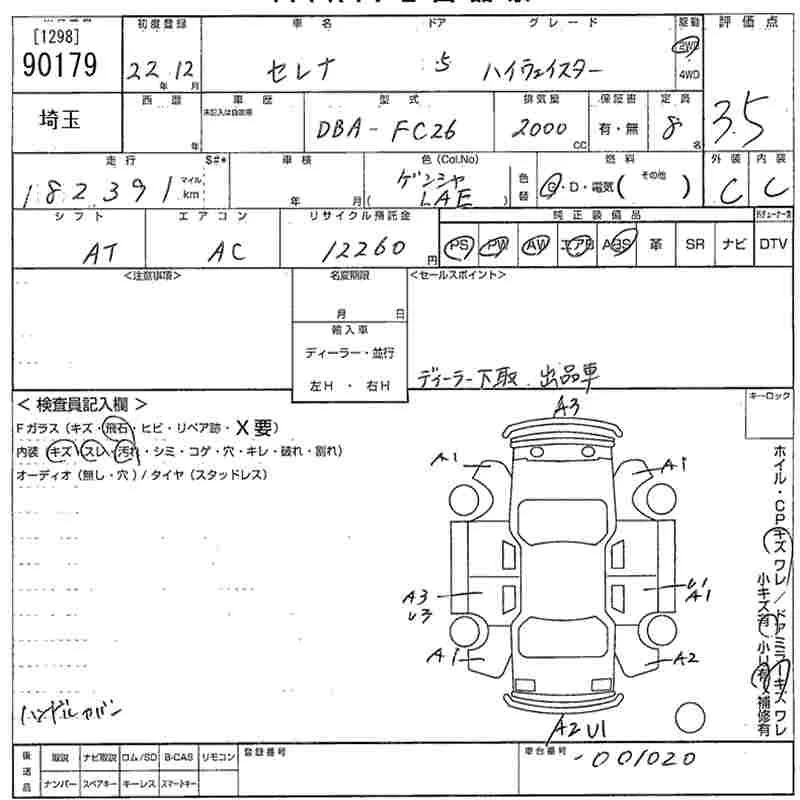 [1298]
90179
初度登録
車名
ドア
グレード
駆動
評価点
22年12月
セレナ
5
ハイウェイスター
2WD
4WD
埼玉
西暦
年
車歴
未記入は自家用
型式
DBA-FC26
排気量
2000 CC
保証書
有・無
定員
8名
3.5
走行
S#*
車検
色(Col.No)
燃料
外装
内装
182391
マイル
km
年 月
ゲンミヤ
( LAE )
色替
G・D・電気( その他 )
C
C
シフト
エアコン
リサイクル預託金
純正装備品
AT
AC
12260円
PS
PW
AW
エアB
ABS
革
SR
ナビ
DTV
<注意事項>
名変期限
月 日
<セールスポイント>
輸入車
ディーラー・並行
左H ・ 右H
ディーラー下取 出品車
< 検査員記入欄 >
Fガラス(キズ・飛石・ヒビ・リペア跡・X要)
内装(キズ・スレ・汚れ・シミ・コゲ・穴・キレ・破れ・割れ)
オーディオ(無し・穴)/タイヤ(スタッドレス)
キーロック
A3
A1
A1
A3
U3
U1
A1
A1
A2
A2 U1
ホイル・CPキズワレ/ドアミラーキズワレ
小キズ有 小U有 補修有
ハンドルカバン
後送品
取説
ナビ取説
ロム/SD
B-CAS
リモコン
ナンバー
スペアキー
キーレス
スマートキー
登録番号
車台番号
-001020